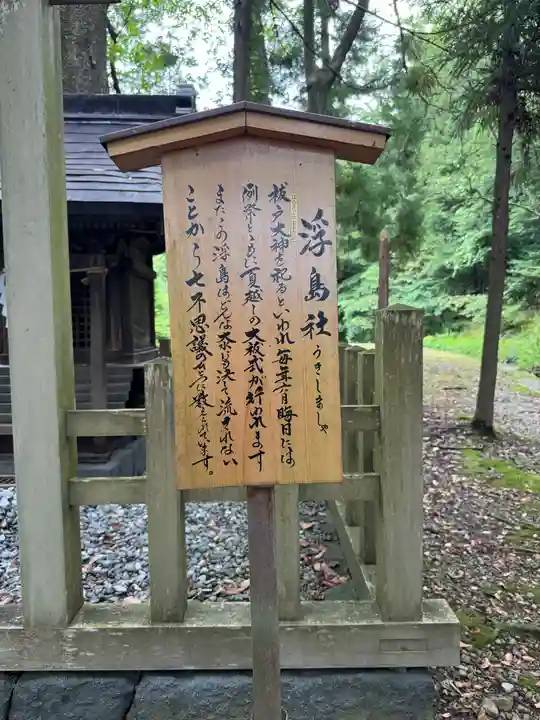 浮島社
うきしましゃ
祓戸大神を祀るといわれ毎年六月晦日には
例祭とともに夏越しの大祓式が斎行されます
またこの浮島はどんな大水にも決して流されない
ことから七不思議の一つに数えられています。